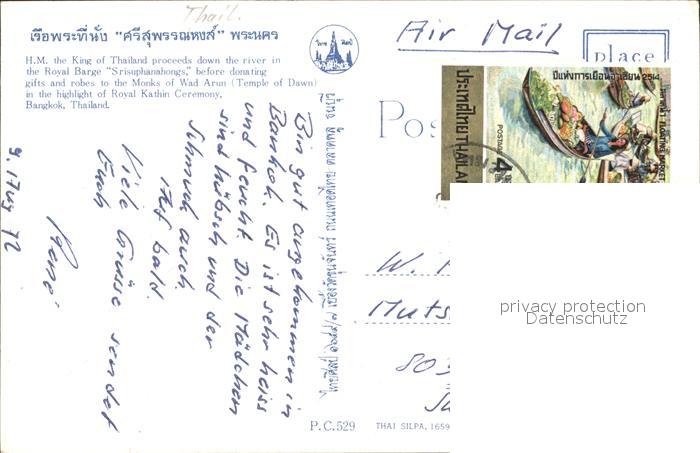 Thail.
เรือพระที่นั่ง "ศรีสุพรรณหงส์" พระนคร
H.M. the King of Thailand proceeds down the river in
the Royal Barge "Srisuphanahongs," before donating
gifts and robes to the Monks of Wad Arun (Temple of Dawn)
in the highlight of Royal Kathin Ceremony,
Bangkok, Thailand.
Bin gut angekommen in
Bankok. Es ist sehr heiss
und feucht. Die Mädchen
sind hübsch und der
Schmuck auch
Auf bald.
Viele Grüsse sendet
Euch
René
P.C.529
THAI SILPA, 1659
Air Mail
place
Pos
ปีแห่งการเยือนอาเซียน 2514
ประเทศไทย THAILA
POSTAGE
FLOATING MARKET
4
W.
Muts
803
privacy protection
Datenschutz